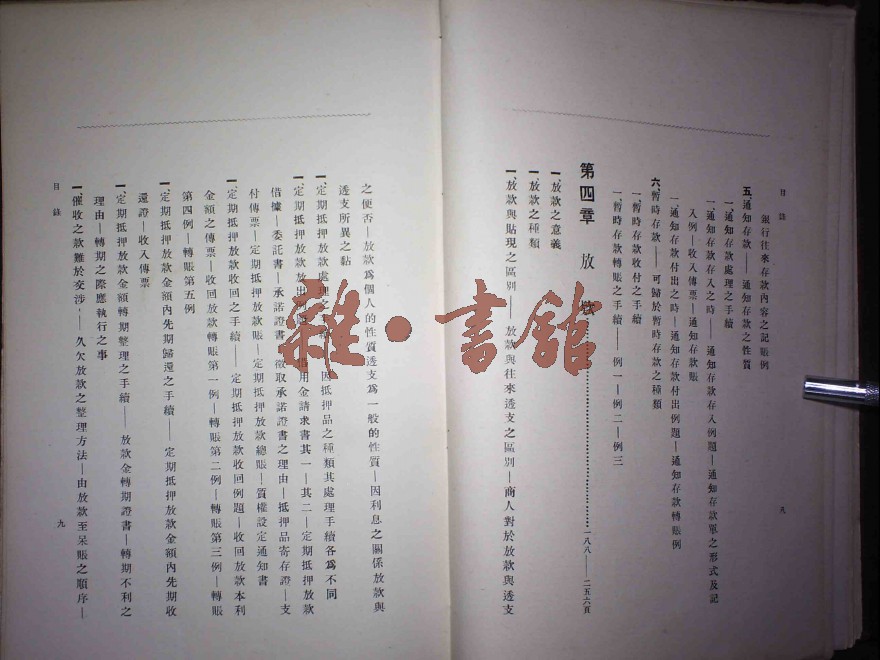 目錄
銀行往來存款內容之記賬例
五、通知存款——通知存款之性質
一、通知存款處理之手續
一、通知存款存入之時——通知存款存入例題—通知存款單之形式及記
入例—收入傳票—通知存款賬
一、通知存款付出之時—通知存款付出例題—通知存款轉賬例
六、暫時存款——可歸於暫時存款之種類
一、暫時存款收付之手續
一、暫時存款轉賬之手續——例一—例二—例三
第四章 放款…………一八八——二五六頁
一、放款之意義
一、放款之種類
一、放款與貼現之區別——放款與往來透支之區別—商人對於放款與透支
之便否—放款為個人的性質透支為一般的性質—因利息之關係放款與
透支所異之點
一、定期抵押放款處理之 因抵押品之種類其處理手續各為不同
一、定期抵押放款放出 借用金請求書其一—其二—定期抵押放款
借據—委託書—承諾證書 徵取承諾證書之理由—抵押品寄存證—支
付傳票—定期抵押放款賬—定期抵押放款總賬—質權設定通知書
一、定期抵押放款收回之手續——定期抵押放款收回例題—收回放款本利
金額之傳票—收回放款轉賬第一例—轉賬第二例—轉賬第三例—轉賬
第四例—轉賬第五例
一、定期抵押放款金額內先期歸還之手續——定期抵押放款金額內先期收
還證—收入傳票
一、定期抵押放款金額轉期整理之手續——放款金轉期證書—轉期不利之
理由—轉期之際應執行之事
一、催收之款難於交涉——久欠放款之整理方法—由放款至呆賬之順序—
目錄
九
雜·書館